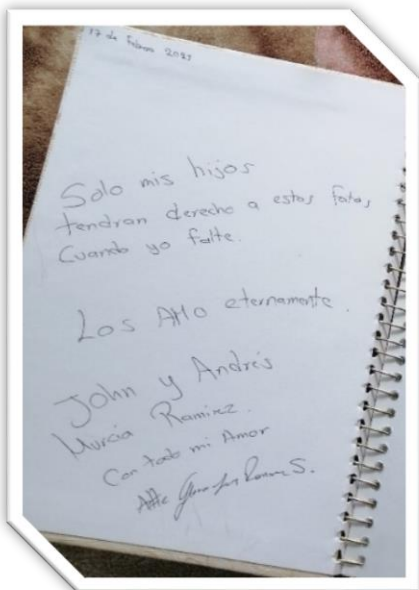 17 de Febrero 2021
Solo mis hijos
tendran derecho a estas fotos,
Cuando yo falte.
Los AMo eternamente.
John y Andrés
Murcia Ramirez.
Con todo mi Amor
Atte